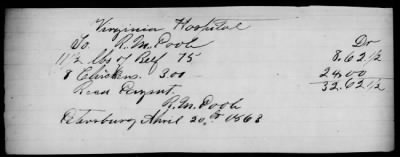 Virginia Hospital
To R. M. Pool Dr
11 1/2 lbs of Beef 75 8.62 1/2
8 Chickens. 3.00 24.00
32.62 1/2
Recd Paymt
R. M. Pool
Petersburg April 20th 1863